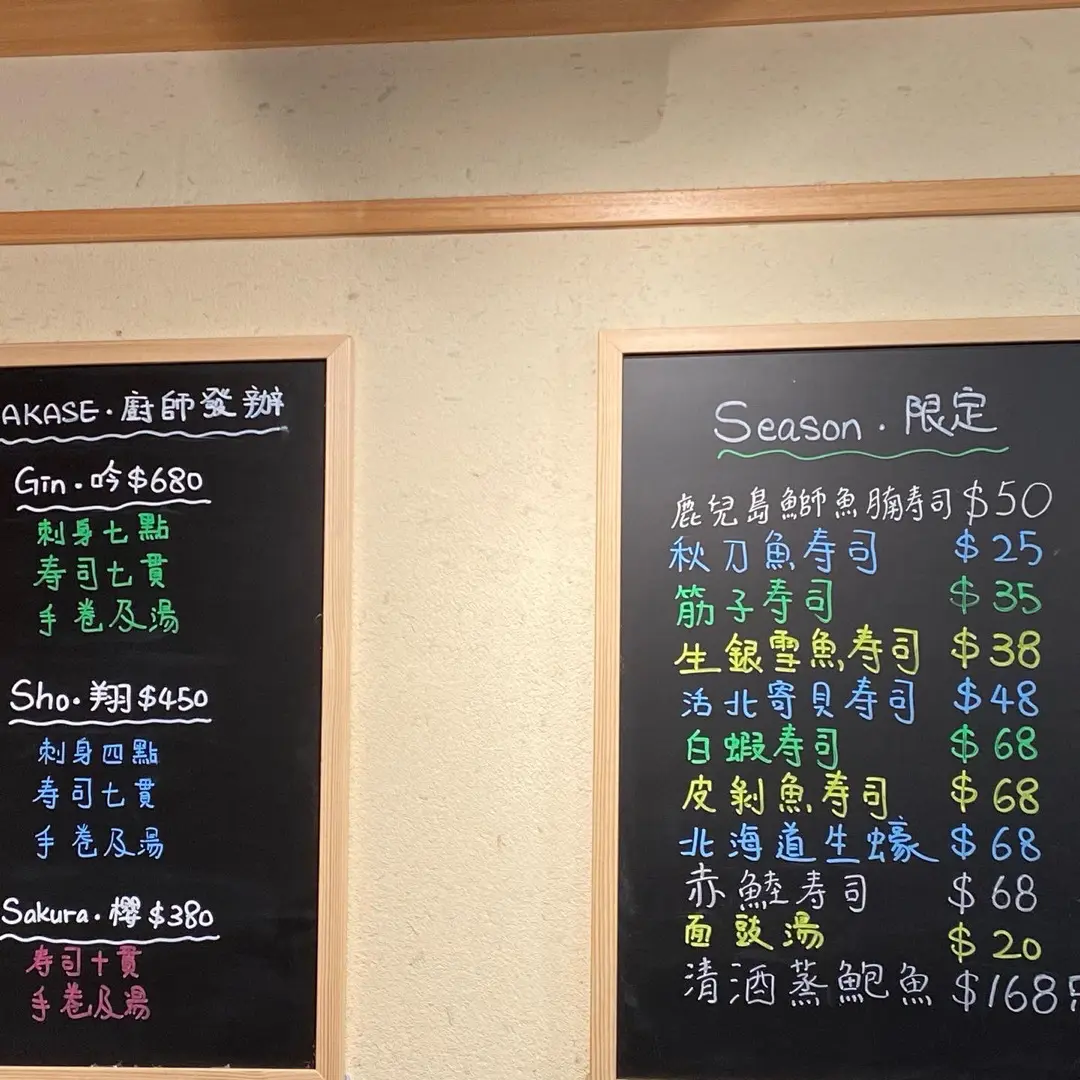 AKASE·廚師發辦
Gin·吟$680
刺身七點
寿司七貫
手卷及湯
Sho·翔$450
刺身四點
寿司七貫
手卷及湯
Sakura·櫻$380
寿司十貫
手卷及湯
Season·限定
鹿兒島鰤魚腩寿司$50
秋刀魚寿司 $25
筋子寿司 $35
生銀雪魚寿司 $38
活北寄貝寿司 $48
白蝦寿司 $68
皮剝魚寿司 $68
北海道生蠔 $68
赤鯥寿司 $68
面豉湯 $20
清酒蒸鮑魚 $168